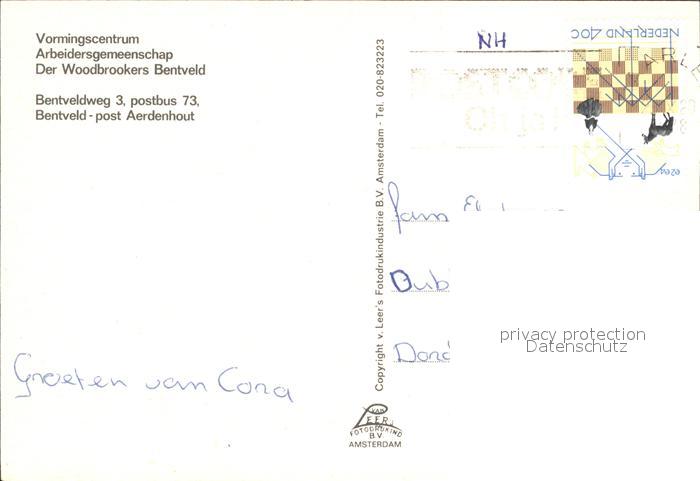 Vormingscentrum
Arbeidersgemeenschap
Der Woodbrookers Bentveld
Bentveldweg 3, postbus 73,
Bentveld - post Aerdenhout
Groeten van Cora
Copyright v. Leer's Fotodrukindustrie B.V. Amsterdam - Tel. 020-823223
VAN
LEER's
FOTODRUKIND
B.V.
AMSTERDAM
NH
NEDERLAND 40C
Oh ja!
Fam
privacy protection
Datenschutz